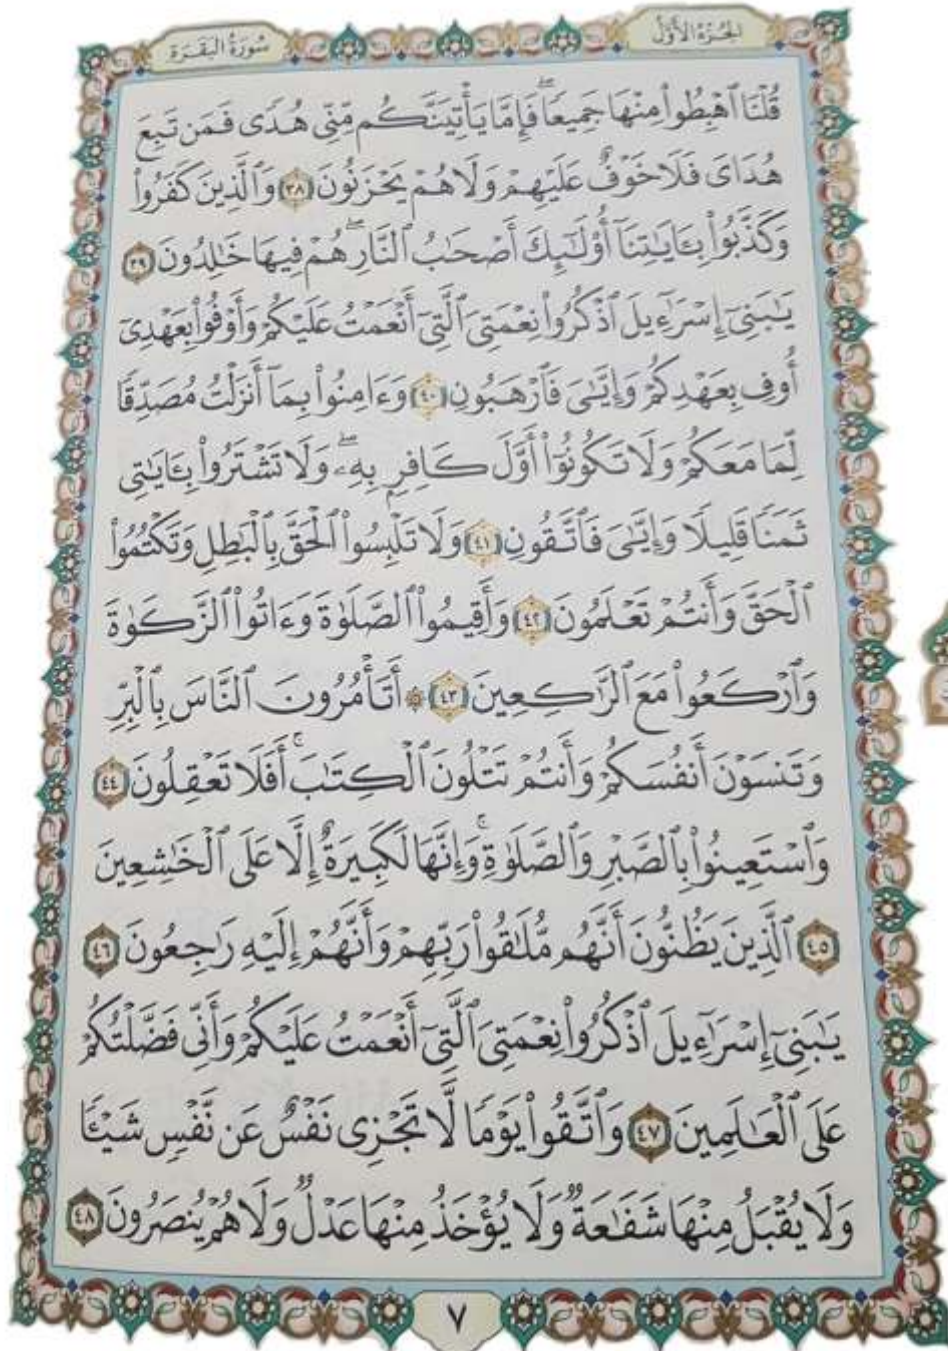 الجزء الأول
سورة البقرة
قُلْنَا ٱهْبِطُوا۟ مِنْهَا جَمِيعًۭا ۖ فَإِمَّا يَأْتِيَنَّكُم مِّنِّى هُدًۭى فَمَن تَبِعَ
هُدَاىَ فَلَا خَوْفٌ عَلَيْهِمْ وَلَا هُمْ يَحْزَنُونَ ٣٨ وَٱلَّذِينَ كَفَرُوا۟
وَكَذَّبُوا۟ بِـَٔايَـٰتِنَآ أُو۟لَـٰٓئِكَ أَصْحَـٰبُ ٱلنَّارِ ۖ هُمْ فِيهَا خَـٰلِدُونَ ٣٩
يَـٰبَنِىٓ إِسْرَٰٓءِيلَ ٱذْكُرُوا۟ نِعْمَتِىَ ٱلَّتِىٓ أَنْعَمْتُ عَلَيْكُمْ وَأَوْفُوا۟ بِعَهْدِىٓ
أُوفِ بِعَهْدِكُمْ وَإِيَّـٰىَ فَٱرْهَبُونِ ٤٠ وَءَامِنُوا۟ بِمَآ أَنزَلْتُ مُصَدِّقًۭا
لِّمَا مَعَكُمْ وَلَا تَكُونُوٓا۟ أَوَّلَ كَافِرٍۭ بِهِۦ ۖ وَلَا تَشْتَرُوا۟ بِـَٔايَـٰتِى
ثَمَنًۭا قَلِيلًۭا وَإِيَّـٰىَ فَٱتَّقُونِ ٤١ وَلَا تَلْبِسُوا۟ ٱلْحَقَّ بِٱلْبَـٰطِلِ وَتَكْتُمُوا۟
ٱلْحَقَّ وَأَنتُمْ تَعْلَمُونَ ٤٢ وَأَقِيمُوا۟ ٱلصَّلَوٰةَ وَءَاتُوا۟ ٱلزَّكَوٰةَ
وَٱرْكَعُوا۟ مَعَ ٱلرَّٰكِعِينَ ٤٣ ۞ أَتَأْمُرُونَ ٱلنَّاسَ بِٱلْبِرِّ
وَتَنسَوْنَ أَنفُسَكُمْ وَأَنتُمْ تَتْلُونَ ٱلْكِتَـٰبَ ۚ أَفَلَا تَعْقِلُونَ ٤٤
وَٱسْتَعِينُوا۟ بِٱلصَّبْرِ وَٱلصَّلَوٰةِ ۚ وَإِنَّهَا لَكَبِيرَةٌ إِلَّا عَلَى ٱلْخَـٰشِعِينَ
٤٥ ٱلَّذِينَ يَظُنُّونَ أَنَّهُم مُّلَـٰقُوا۟ رَبِّهِمْ وَأَنَّهُمْ إِلَيْهِ رَٰجِعُونَ ٤٦
يَـٰبَنِىٓ إِسْرَٰٓءِيلَ ٱذْكُرُوا۟ نِعْمَتِىَ ٱلَّتِىٓ أَنْعَمْتُ عَلَيْكُمْ وَأَنِّى فَضَّلْتُكُمْ
عَلَى ٱلْعَـٰلَمِينَ ٤٧ وَٱتَّقُوا۟ يَوْمًۭا لَّا تَجْزِى نَفْسٌ عَن نَّفْسٍۢ شَيْـًۭٔا
وَلَا يُقْبَلُ مِنْهَا شَفَـٰعَةٌۭ وَلَا يُؤْخَذُ مِنْهَا عَدْلٌۭ وَلَا هُمْ يُنصَرُونَ ٤٨
٧